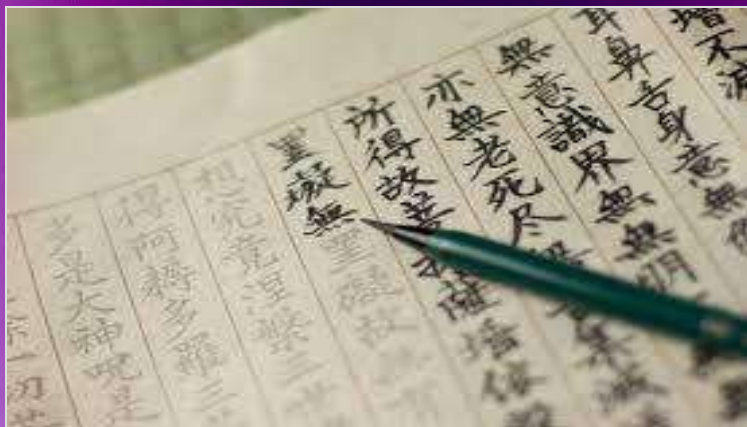 増不減
耳鼻舌身意無
無意識界無無明
亦無老死尽集滅
所得故菩提薩埵依般
罣礙無罣礙故無有
想究竟涅槃三世
得阿耨多羅三
多是大神呪是
一切